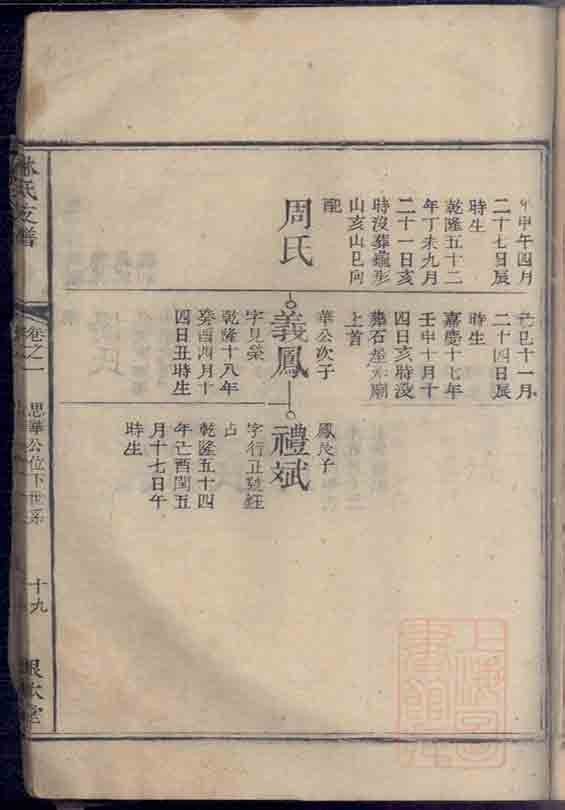 年甲午四月
二十七日辰
時生
乾隆五十二
年丁未九月
二十一日亥
時沒葬龜形
山亥山巳向
配
周氏
己巳十一月
二十四日辰
時生
嘉慶十七年
壬申十月十
四日亥時沒
葬石壟水廟
上首
華公次子
義鳳
字見榮
乾隆十八年
癸酉四月十
四日丑時生
鳳長子
禮斌
字行正
占
乾隆五十四
年己酉閏五
月十七日午
時生
林氏支譜
卷之一
思華公位下世系
十九
根本堂
上海圖書館藏